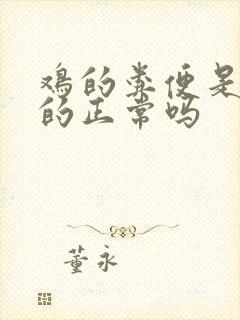 鸡的粪便是
的正常吗
董永